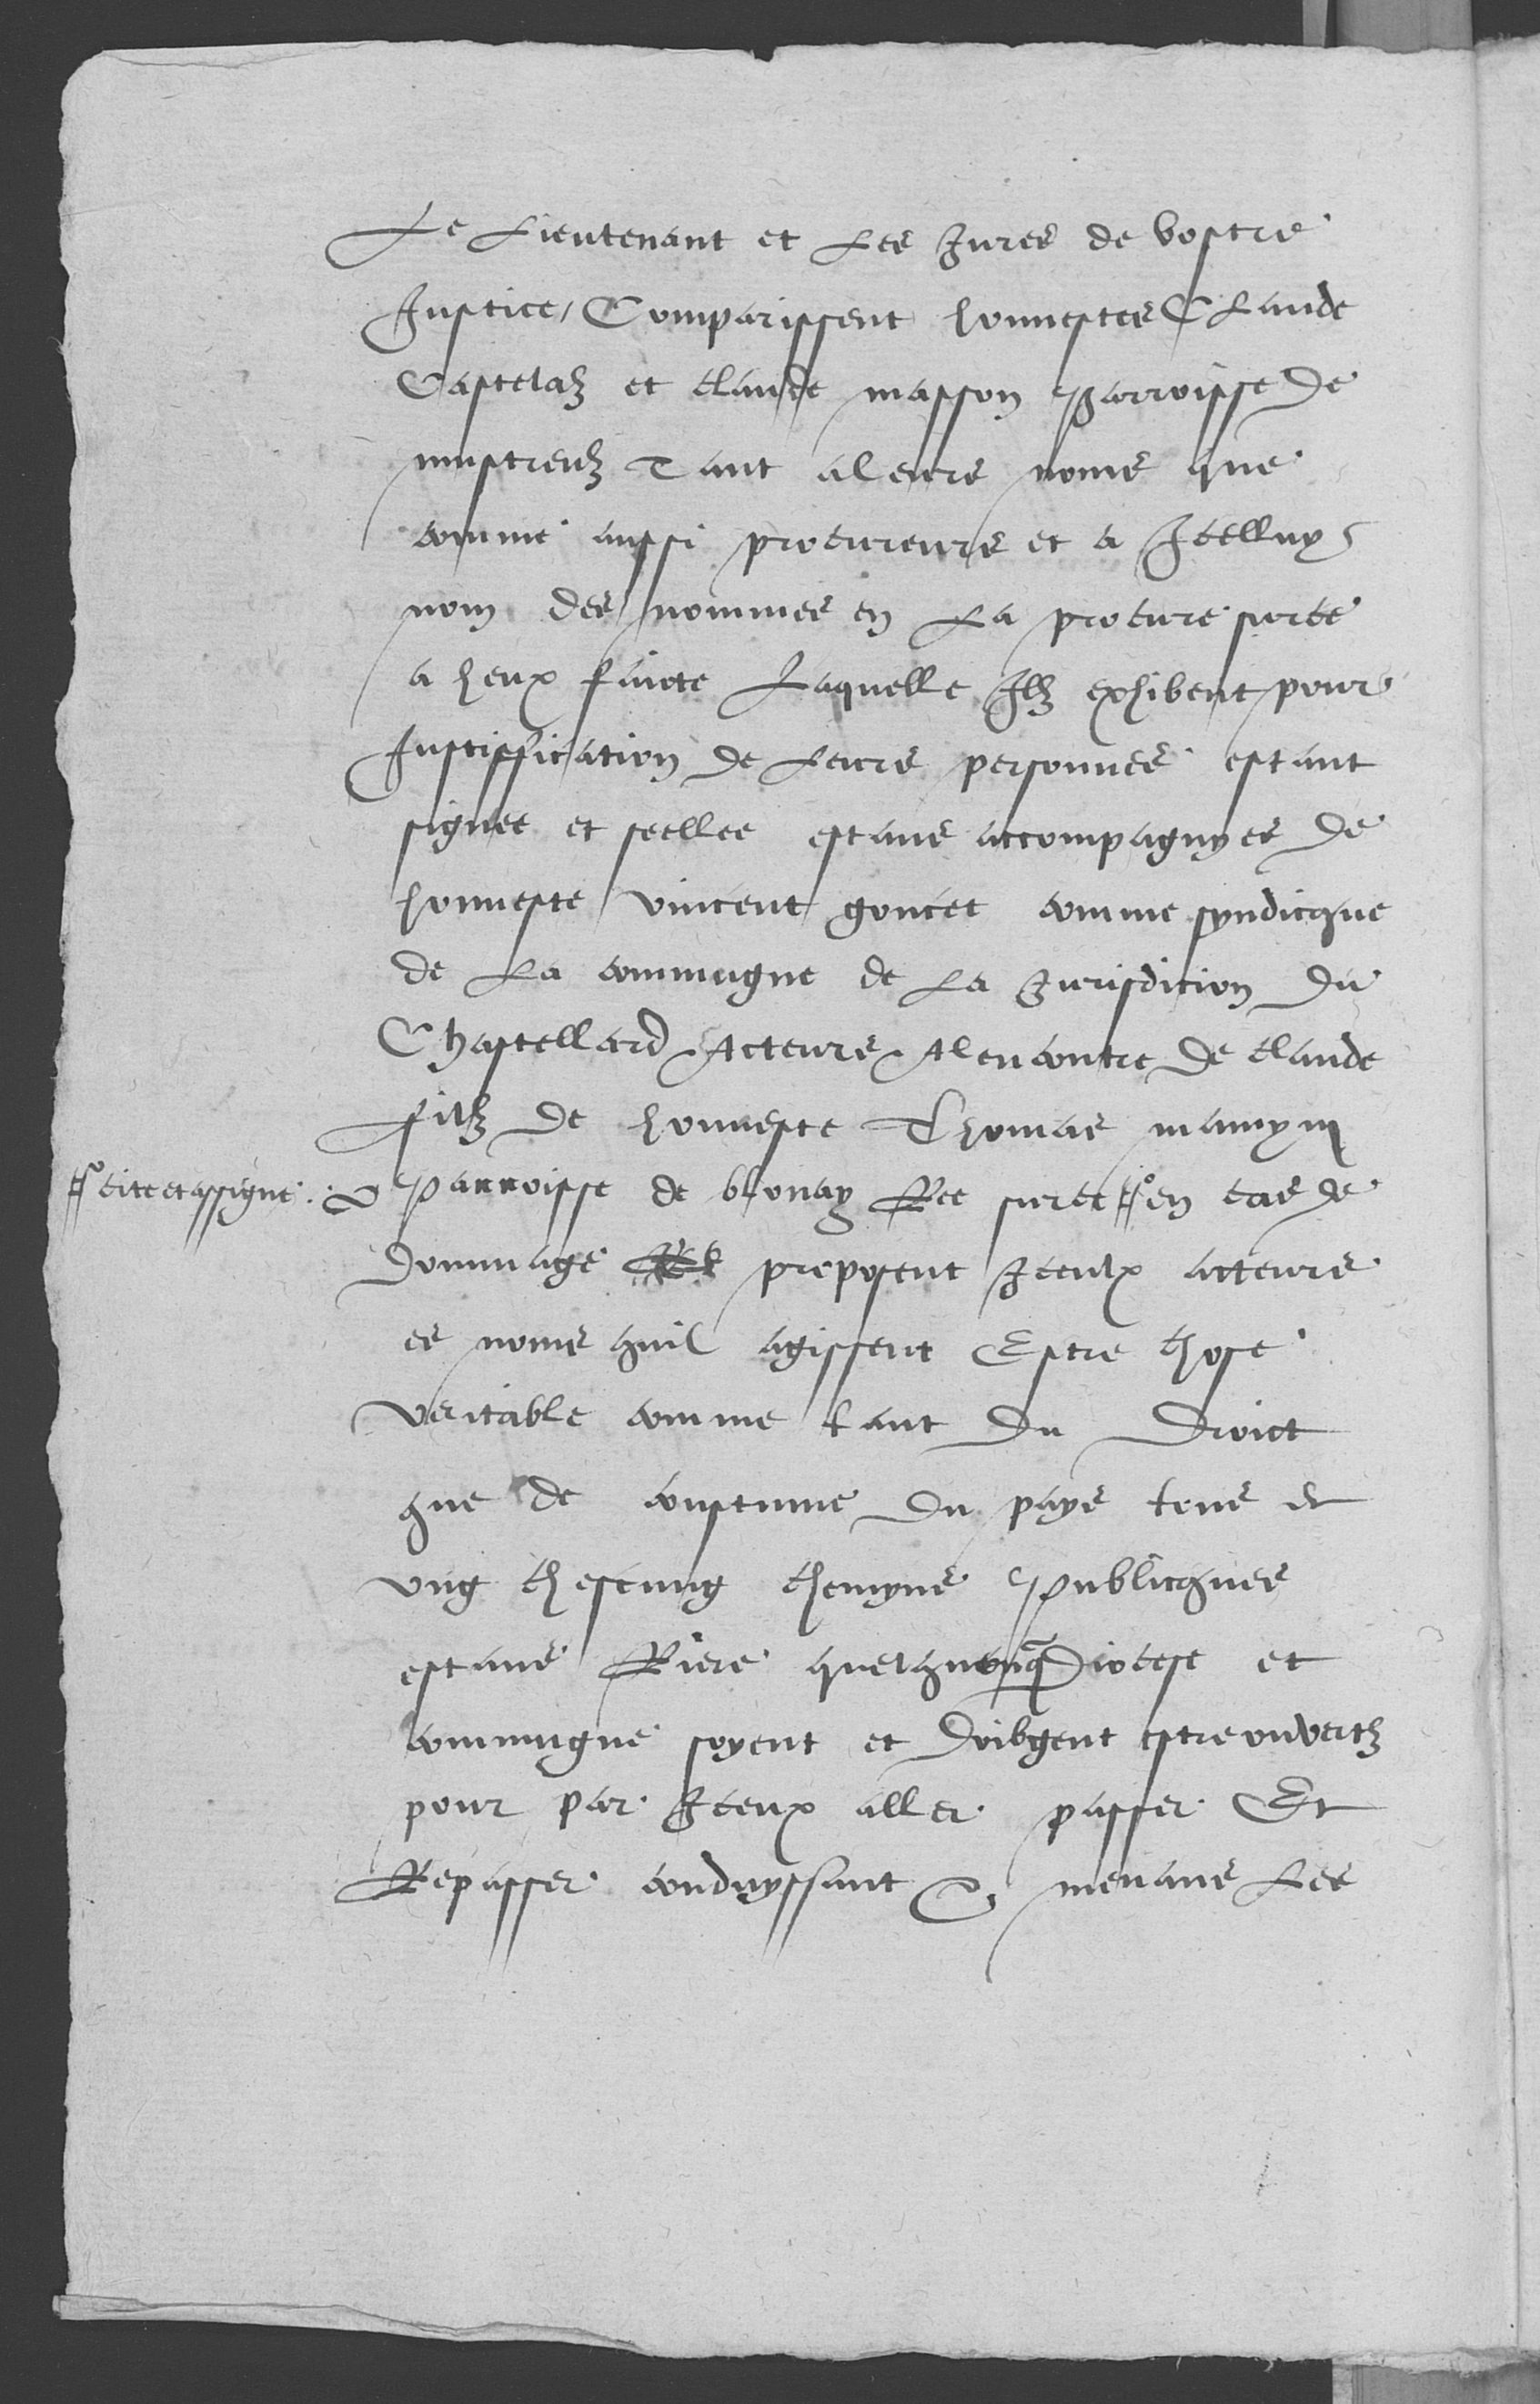 Le Lieutenant et Les Jures de vostre
Justice, Comparissent honnestes Claude
Castelaz et claude masson parroisse de
mustreuz Tant a leurs noms que
comme aussi procureurs et a Icelluy
nom des nommes en La procure surce
a heux faicte Laquelle Ilz exhibent pour
Justiffication de Leurs personnes estant
signee et seellee estans accompagnyes de
honneste vincent goncet comme syndicque
de La commugne de La Jurisdicion du
Chastellard Acteurs Alencontre de claude
filz de honneste Thomas mamyn
cite et assigne.
Parroisse de blonay Ree surce en cas de
dommage proposent Iceulx acteurs
es noms quil agissent Estre chose
veritable comme tant du droict
que de coustume du pays tous et
ung chescung chemyns Publicques
estans Riere quelquonq Diocese et
commugne soyent et doibgent estre ouvertz
pour par Iceux aller passer Et
Repasser conduyssant & menans Les